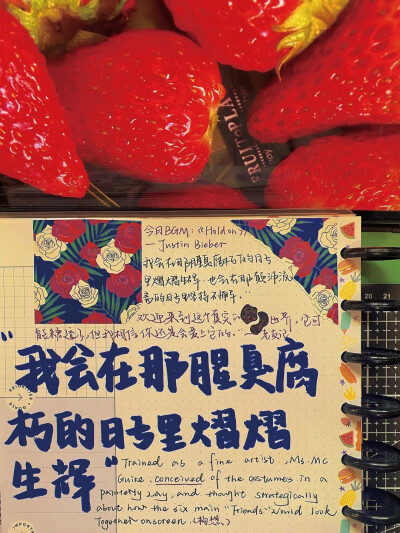 FRUITOPLA
今日BGM:《Hold on》
— Justin Bieber
我会在那腥臭腐朽的日子
里熠熠生辉,也会在那颠沛流
离的日子里坚持不懈."
欢迎来到这个真实的 世界,它可
能糟透了,但我相信你还是会爱上它的."—老友记
"我会在那腥臭腐
朽的日子里熠熠
生辉"
Trained as a fine artist, Ms. Mc
Guire conceived of the costumes in a
painterly way, and thought strategically
about how the six main "Friends" would look
together onscreen.(构想)
20 21